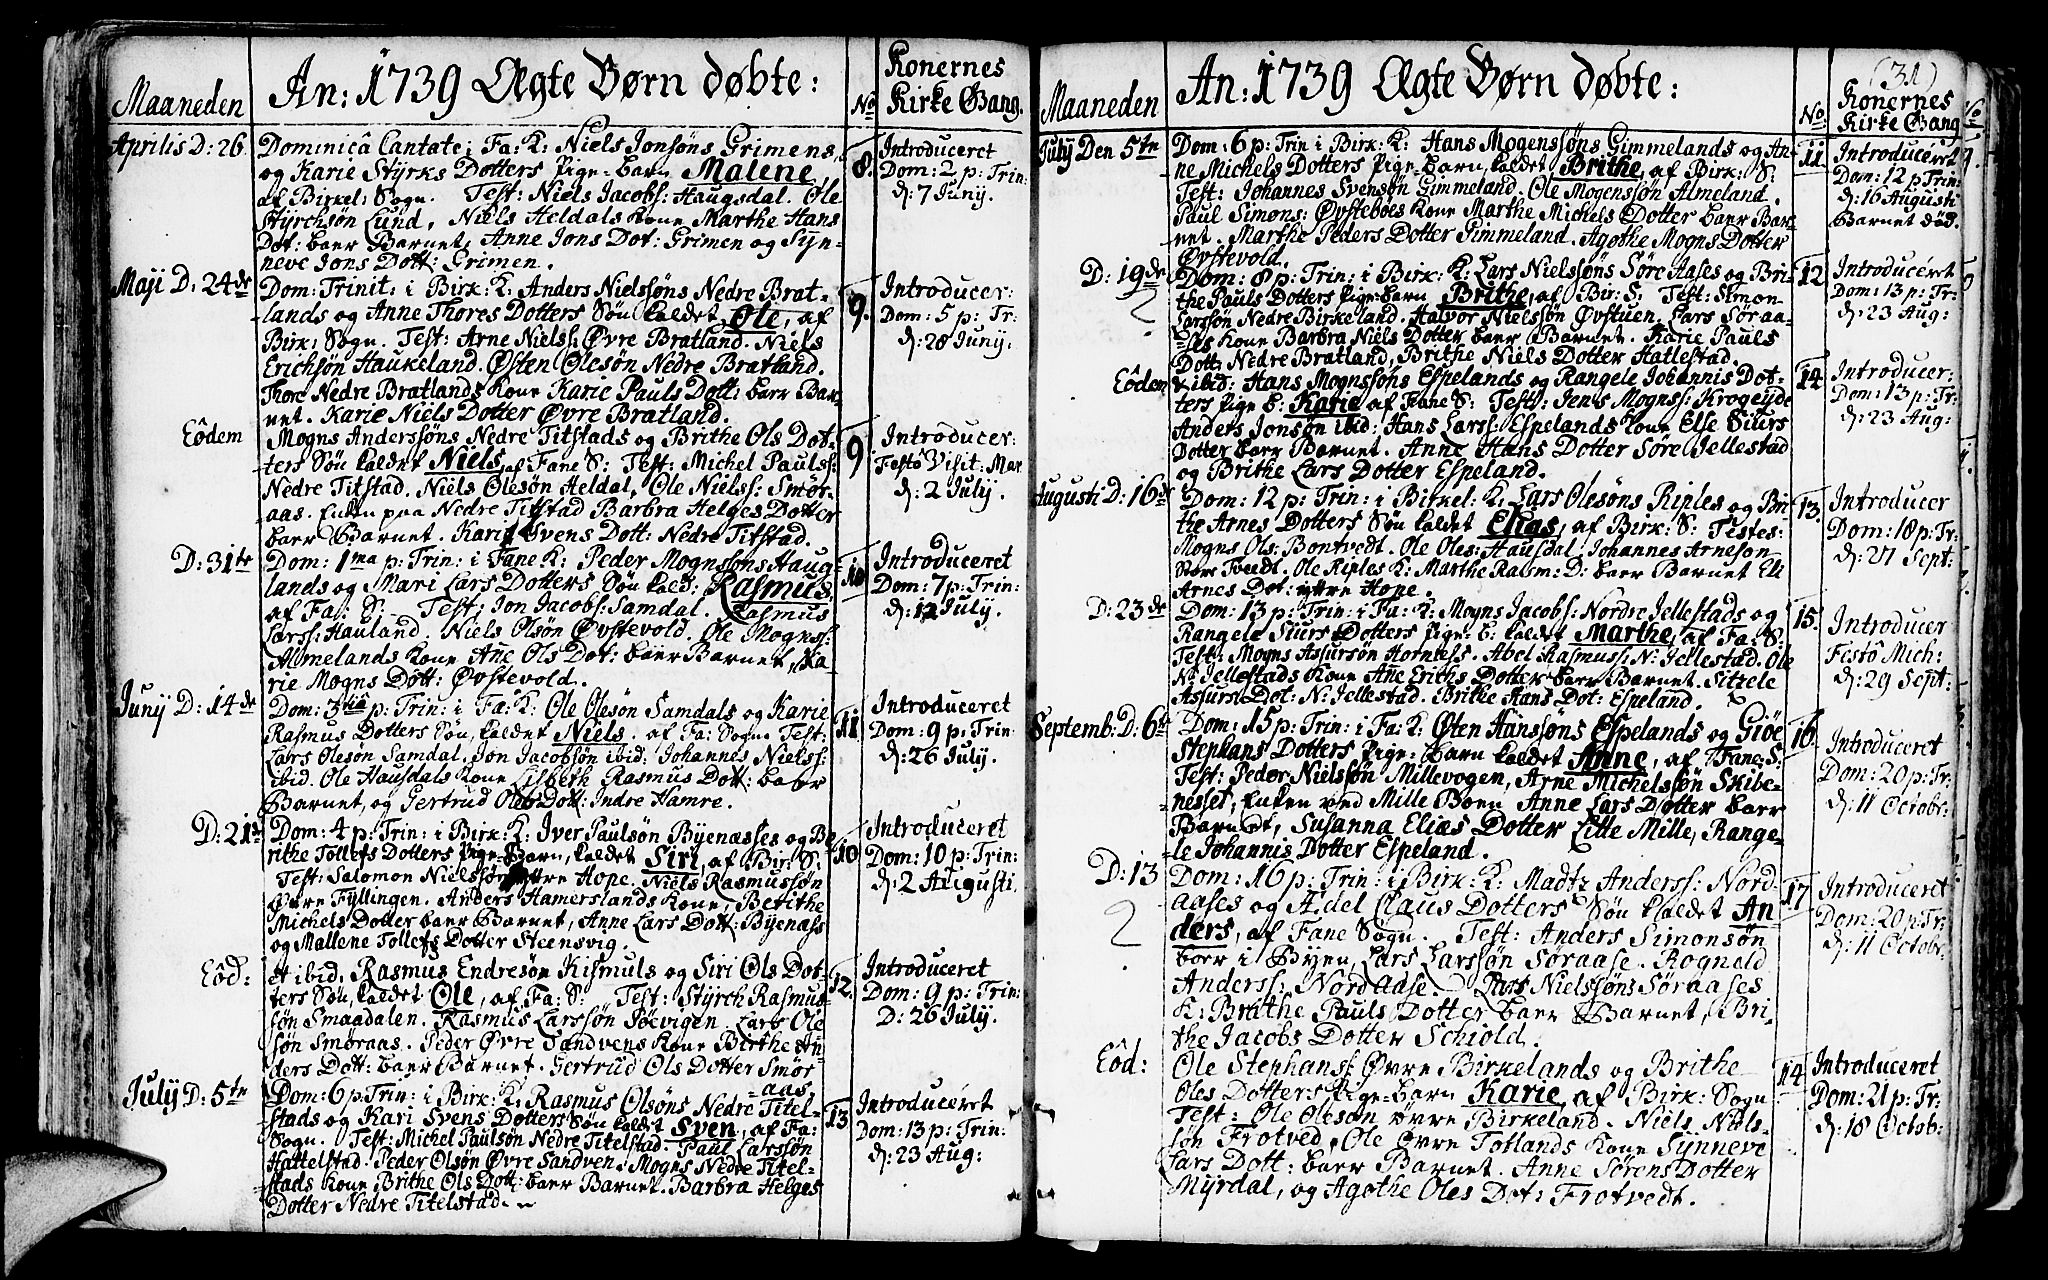 Maaneden
An: 1739 Ægte Børn døbte:
No
Konernes
Kirke Gang.
Aprilis D: 26
Dominicâ Cantate i Fa: K: Niels Jonsöns Grimens,
og Karie Styrks Dotters Pige-barn Malene
af Birkel: Sogn. Test: Niels Jacobs: Haugsdal. Ole
Styrchsön Lund, Niels Heldals Kone Marthe Hans
Dot: baer Barnet, Anne Jons Dot: Grimen og Syn-
neve Jons Dott: Grimen.
8.
Introduceret
Dom: 2 p: Trin:
d: 7 Junÿ.
Maji D: 24de
Dom: Trinit: i Birk: K: Anders Nielssöns Nedre Brat-
lands og Anne Thores Dotters Sön kaldet Ole, af
Birk: Sogn. Test: Arne Niels: Øvre Bratland. Niels
Erichsön Haukeland. Østen Olesön Nedre Bratland.
Thore Nedre Bratlands Kone Karie Pauls Dott: baer Bar-
net. Karie Niels Dotter Øvre Bratland.
9.
Introducer:
Dom: 5 p: Tr:
d: 28 Junÿ.
Eôdem
Mogns Anderssöns Nedre Titstads og Brithe Ols Dot-
ters Sön kaldet Niels af Fane S: Test: Michel Pauls:
Nedre Titstad. Niels Olesön Heldal, Ole Niels: Smör-
aas. Enken paa Nedre Titstad Barbra Helges Dotter
baer Barnet. Kari Svens Dott: Nedre Titstad.
9
Introducer:
Festô Visit: Mar
d: 2 July.
D: 31te
Dom: 1ma p: Trin: i Fane K: Peder Mognssöns Haug-
lands og Mari Lars Dotters Sön kald: Rasmus,
af Fa: S. Test: Jon Jacobs: Samdal. Rasmus
Larss: Hauland. Niels Olsön Øvstevold. Ole Mognss:
Almelands Kone Ane Ols Dot: baer Barnet, Ka
rie Mogns Dott: Øvstevold.
10
Introduceret
Dom: 7 p: Trin:
d: 12 July.
Junÿ D: 14de
Dom: 3tiâ p: Trin: i Fa: K: Ole Olesön Samdals og Karie
Rasmus Dotters Sön, kaldet Niels. af Fa: Sogn. Test:
Lars Olesön Samdal, Jon Jacobsön ibid: Johannes Nielss:
ibid. Ole Hausdals Kone Lisbeth Rasmus Dott: baer
Barnet, og Gertrud Oles Dott: Indre Hamre.
11
Introduceret
Dom: 9 p: Trin
d: 26 July.
D: 21
Dom: 4 p: Trin: i Birk: K: Iver Paulsön Byenæsses og Be
rithe Tollefs Dotters Pige-Barn, kaldet Siri, af Bir: S.
Test: Salomon Nielssön Hope. Niels Rasmussön
Øvre Fyllingen. Anders Hamerslands Kone, Berithe
Michels Dotter baer Barnet, Anne Lars Dott: Byenæss
og Mallene Tollefs Dotter Steensvig.
10
Introduceret
Dom: 10 p: Trin:
d: 2 Augusti.
Eôd:
et ibid, Rasmus Endresön Kismuls og Siri Ols Dot-
ters Sön, kaldet Ole, af Fa: S: Test: Styrch Rasmus-
sön Smaadalen. Rasmus Larssön Söevigen. Lars Ole
sön Smöraas. Peder Øvre Sandvens Kone Birthe An-
ders Dott: baer Barnet. Gertrud Ols Dotter Smör
aas.
12.
Introduceret
Dom: 9 p: Trin:
D: 26 July.
July D: 5te
Dom: 6 p: Trin: i Birk: K: Rasmus Olsöns Nedre Titel-
stads og Kari Svens Dotters Sön kaldet Sven, af Fa:
Sogn. Test: Michel Paulsön Nedre Titelstad. Paul Larssön
Hattelstad. Peder Olsön Øvre Sandven. Mogns Nedre Titel-
stads Kone Brithe Ols Dott: baer Barnet. Barbra Helges
Dotter Nedre Titelstad.
13
Introducéret
Dom: 13 p: Trin:
d: 23 Aug:
(31)
Maaneden
An: 1739 Ægte Børn døbte:
No.
Konernes
Kirke Gang
July Den 5te
Dom: 6 p: Trin i Birk: K: Hans Mogenssöns Gimmelands og An-
ne Michels Dotters Pige-barn, kaldet Brithe, af Birk: S:
Test: Johannes Svensön Gimmeland. Ole Mogenssön Almeland.
Paul Simons: Øvsteböes Kone Marthe Michels Dotter baer Bar-
net. Marthe Peders Dotter Gimmeland. Agothe Mogns Dotter
Øvstevold.
11
Introduceret
Dom: 12 p: Trin:
d: 16 Augusti
Barnet död.
D: 19de
Dom: 8 p: Trin: i Birk: K: Lars Nielssöns Söre Aases og Bri-
the Pauls Dotters Pige-barn Brithe, af Bir: S: Test: Simon
Larssön Nedre Birkeland. Halvor Nielssön Øvstuen. Lars Söraa-
ses Kone Barbra Niels Dotter baer Barnet. Karie Pauls
Dott: Nedre Bratland, Brithe Niels Dotter Hatlestad.
12
Introducéret
Dom: 13 p: Tr:
d: 23 Aug:
Eôdem
ibid: Hans Mognssöns Espelands og Rangele Johannis Dot-
ters Pige b: Karie af Fane S: Test: Jens Mogns: Krogeÿde
Anders Jonsön ibid: Hans Larss: Espelands Kone Else Siurs
Dotter baer Barnet. Anne Hans Dotter Söre Jellestad
og Brithe Lars Dotter Espeland.
14
Introducer:
Dom: 13 p: Tr:
d: 23 Aug:
Augusti D: 16de
Dom: 12 p: Trin: i Birkel: K: Lars Olesöns Riples og Bri-
the Arnes Dotters Sön kaldet Elias, af Birk: S: Testes:
Mogns Ols: Bontvedt. Ole Oles: Hausdal, Johannes Arnesön
Stor Tvedt. Ole Riples K: Marthe Rasm: D: baer Barnet Eli
Arnes Dot: ytre Hope.
13.
Introducer
Dom: 18 p: Tr:
d: 27 Sept:
D: 23de
Dom: 13 p: Trin: i Fa: K: Mogns Jacobs: Nordre Jellestads og
Rangele Siurs Dotters Pige-b: kaldet Marthe, af Fa: S.
Test: Mogns Assursön Hornels. Abel Rasmuss: N: Jellestad. Ole
N: Jellestads Kone Ane Erichs Dotter baer Barnet. Sitzele
Assurs Dot: N: Jellestad. Brithe Hans Dot: Espeland.
15.
Introducer
Festô Mich:
d: 29 Sept:
Septemb: D: 6te
Dom: 15 p: Trin: i Fa: K: Østen Hanssöns Espelands og Giöe
Stephans Dotters Pige-barn kaldet Anne, af Fane: S:
Test: Peder Nielssön Millevogen, Arne Michelssön Skibe-
nesset, Enken ved Mille Boen Anne Lars Dotter baer
Barnet, Susanna Elias Dotter Litte Mille, Range-
le Johannis Dotter Espeland.
16
Introduceret
Dom: 20 p: Tr:
d: 11 Octobr:
D: 13
Dom: 16 p: Trin: i Birk: K: Madtz Anderss: Nord-
aases og Adel Claus Dotters Sön kaldet An
ders, af Fane Sogn. Test: Anders Simonsön
boer i Byen, Lars Larssön Söraase. Rogneld
Anderss: Nordaase. Lars Nielssöns Söraases
K: Brithe Pauls Dotter baer Barnet, Bri-
the Jacobs Dotter Schiold.
17
Introduceret
Dom: 20 p: Tr:
d: 11 Octobr:
Eôd:
Ole Stephans: Øvre Birkelands og Brithe
Oles Dotters Pige-barn Karie, af Birk: Sogn
Test: Ole Olesön övre Birkeland. Niels Niels-
sön Frotved, Ole Øvre Totlands Kone Synneve
Lars Dott: baer Barnet. Anne Sörens Dotter
Myrdal, og Agothe Oles Dot: Frotvedt.
14
Introduceret
Dom: 21 p: Tr:
d: 18 Octob: